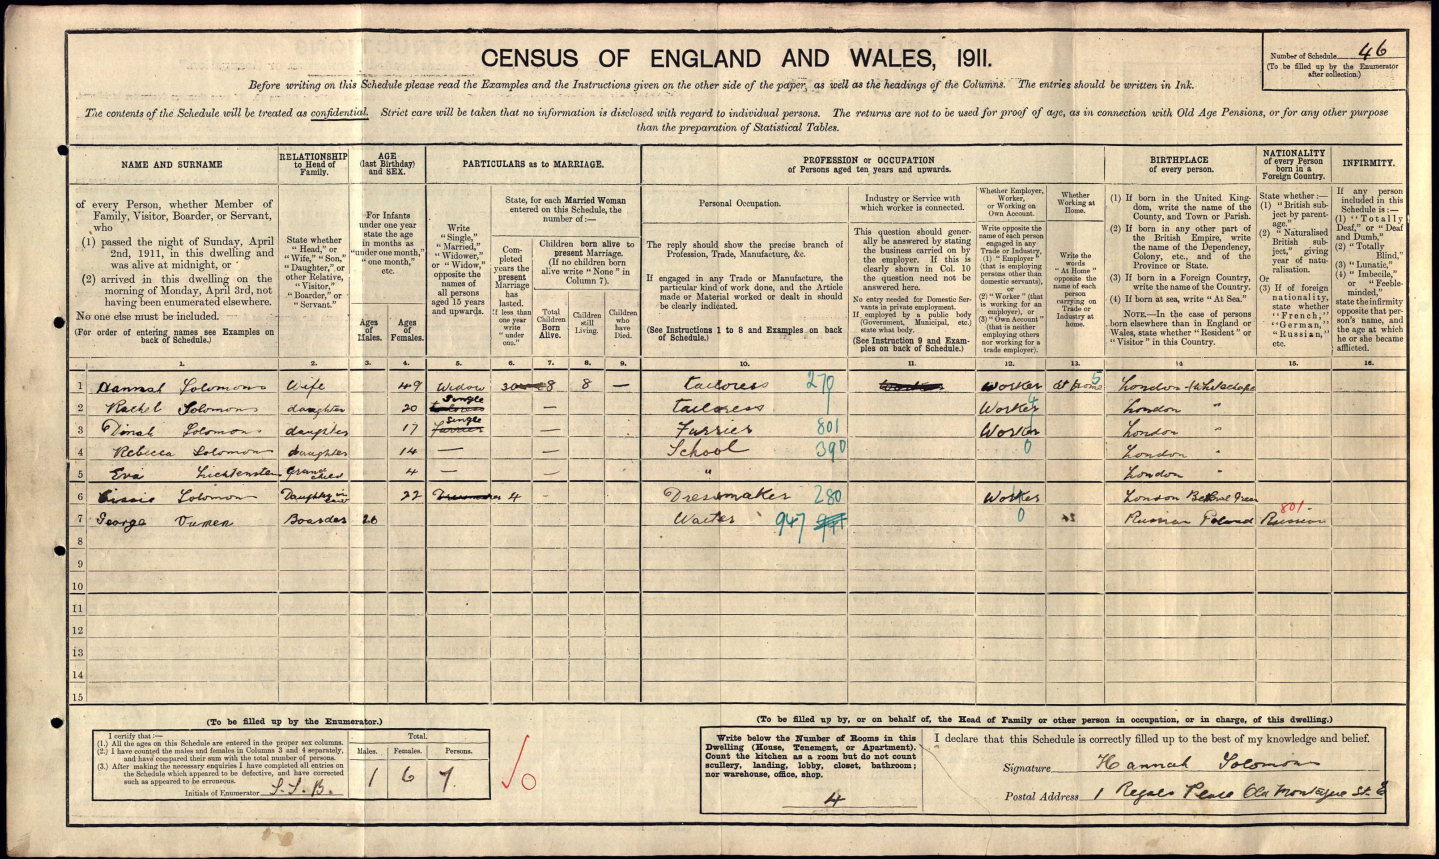 CENSUS OF ENGLAND AND WALES, 1911.
Number of Schedule 46
(To be filled up by the Enumerator
after collection.)
Before writing on this Schedule please read the Examples and the Instructions given on the other side of the paper, as well as the headings of the Columns. The entries should be written in Ink.
The contents of the Schedule will be treated as confidential. Strict care will be taken that no information is disclosed with regard to individual persons. The returns are not to be used for proof of age, as in connection with Old Age Pensions, or for any other purpose
than the preparation of Statistical Tables.
NAME AND SURNAME
of every Person, whether Member of
Family, Visitor, Boarder, or Servant,
who
(1) passed the night of Sunday, April
2nd, 1911, in this dwelling and
was alive at midnight, or
(2) arrived in this dwelling on the
morning of Monday, April 3rd, not
having been enumerated elsewhere.
No one else must be included.
(For order of entering names see Examples on
back of Schedule.)
RELATIONSHIP
to Head of
Family.
State whether
"Head," or
"Wife," "Son,"
"Daughter," or
other Relative,
"Visitor,"
"Boarder," or
"Servant."
AGE
(last Birthday)
and SEX.
For Infants
under one year
state the age
in months as
"under one month,"
"one month,"
etc.
Ages
of
Males.
Ages
of
Females.
PARTICULARS as to MARRIAGE.
Write
"Single,"
"Married,"
"Widower,"
or "Widow,"
opposite the
names of
all persons
aged 15 years
and upwards.
State, for each Married Woman
entered on this Schedule, the
number of:—
Com-
pleted
years the
present
Marriage
has
lasted.
If less than
one year
write
"under
one."
Children born alive to
present Marriage.
(If no children born
alive write "None" in
Column 7).
Total
Children
Born
Alive.
Children
still
Living.
Children
who
have
Died.
PROFESSION or OCCUPATION
of Persons aged ten years and upwards.
Personal Occupation.
The reply should show the precise branch of
Profession, Trade, Manufacture, &c.
If engaged in any Trade or Manufacture, the
particular kind of work done, and the Article
made or Material worked or dealt in should
be clearly indicated.
(See Instructions 1 to 8 and Examples on back
of Schedule.)
Industry or Service with
which worker is connected.
This question should gener-
ally be answered by stating
the business carried on by
the employer. If this is
clearly shown in Col. 10
the question need not be
answered here.
No entry needed for Domestic Ser-
vants in private employment.
If employed by a public body
(Government, Municipal, etc.)
state what body.
(See Instruction 9 and Exam-
ples on back of Schedule.)
Whether Employer,
Worker,
or Working on
Own Account.
Write opposite the
name of each person
engaged in any
Trade or Industry,
(1) "Employer"
(that is employing
persons other than
domestic servants),
or
(2) "Worker" (that
is working for an
employer), or
(3) "Own Account"
(that is neither
employing others
nor working for a
trade employer).
Whether
Working at
Home.
Write the
words
"At Home"
opposite the
name of each
person
carrying on
Trade or
Industry at
home.
BIRTHPLACE
of every person.
(1) If born in the United King-
dom, write the name of the
County, and Town or Parish.
(2) If born in any other part of
the British Empire, write
the name of the Dependency,
Colony, etc., and of the
Province or State.
(3) If born in a Foreign Country,
write the name of the Country.
(4) If born at sea, write "At Sea."
NOTE.—In the case of persons
born elsewhere than in England or
Wales, state whether "Resident" or
"Visitor" in this Country.
NATIONALITY
of every Person
born in a
Foreign Country.
State whether:—
(1) "British sub-
ject by parent-
age."
(2) "Naturalised
British sub-
ject," giving
year of natu-
ralisation.
Or
(3) If of foreign
nationality,
state whether
"French,"
"German,"
"Russian,"
etc.
INFIRMITY.
If any person
included in this
Schedule is:—
(1) "Totally
Deaf," or "Deaf
and Dumb,"
(2) "Totally
Blind,"
(3) "Lunatic,"
(4) "Imbecile,"
or "Feeble-
minded,"
state the infirmity
opposite that per-
son's name, and
the age at which
he or she became
afflicted.
1. 2. 3. 4. 5. 6. 7. 8. 9. 10. 11. 12. 13. 14 15. 16.
1 Hannah Solomons Wife 49 Widow 30 8 8 — tailoress 270 Worker Worker At Home 5 London Whitechapel
2 Rachel Solomons daughter 20 Single — tailoress Worker London "
3 Dinah Solomons daughter 17 Single Furrier — Furrier 801 Worker London "
4 Rebecca Solomons daughter 14 — — School 390 0 London "
5 Eva Lichtenstein Grand child 4 — — " London "
6 Cissie Solomons Daughter in law 22 Dressmaker 4 Dressmaker 280 Worker London Bethnal Green
7 George Boarder 26 Waiter 947 0 Russian Poland 801 Russian
8
9
10
11
12
13
14
15
(To be filled up by the Enumerator.)
I certify that:—
(1.) All the ages on this Schedule are entered in the proper sex columns.
(2.) I have counted the males and females in Columns 3 and 4 separately,
and have compared their sum with the total number of persons.
(3.) After making the necessary enquiries I have completed all entries on
the Schedule which appeared to be defective, and have corrected
such as appeared to be erroneous.
Initials of Enumerator S.S.B.
Total.
Males. Females. Persons.
1 6 7.
(To be filled up by, or on behalf of, the Head of Family or other person in occupation, or in charge, of this dwelling.)
Write below the Number of Rooms in this
Dwelling (House, Tenement, or Apartment).
Count the kitchen as a room but do not count
scullery, landing, lobby, closet, bathroom;
nor warehouse, office, shop.
4
I declare that this Schedule is correctly filled up to the best of my knowledge and belief.
Signature Hannah Solomons
Postal Address 1 Regals Place Old Montague St. E